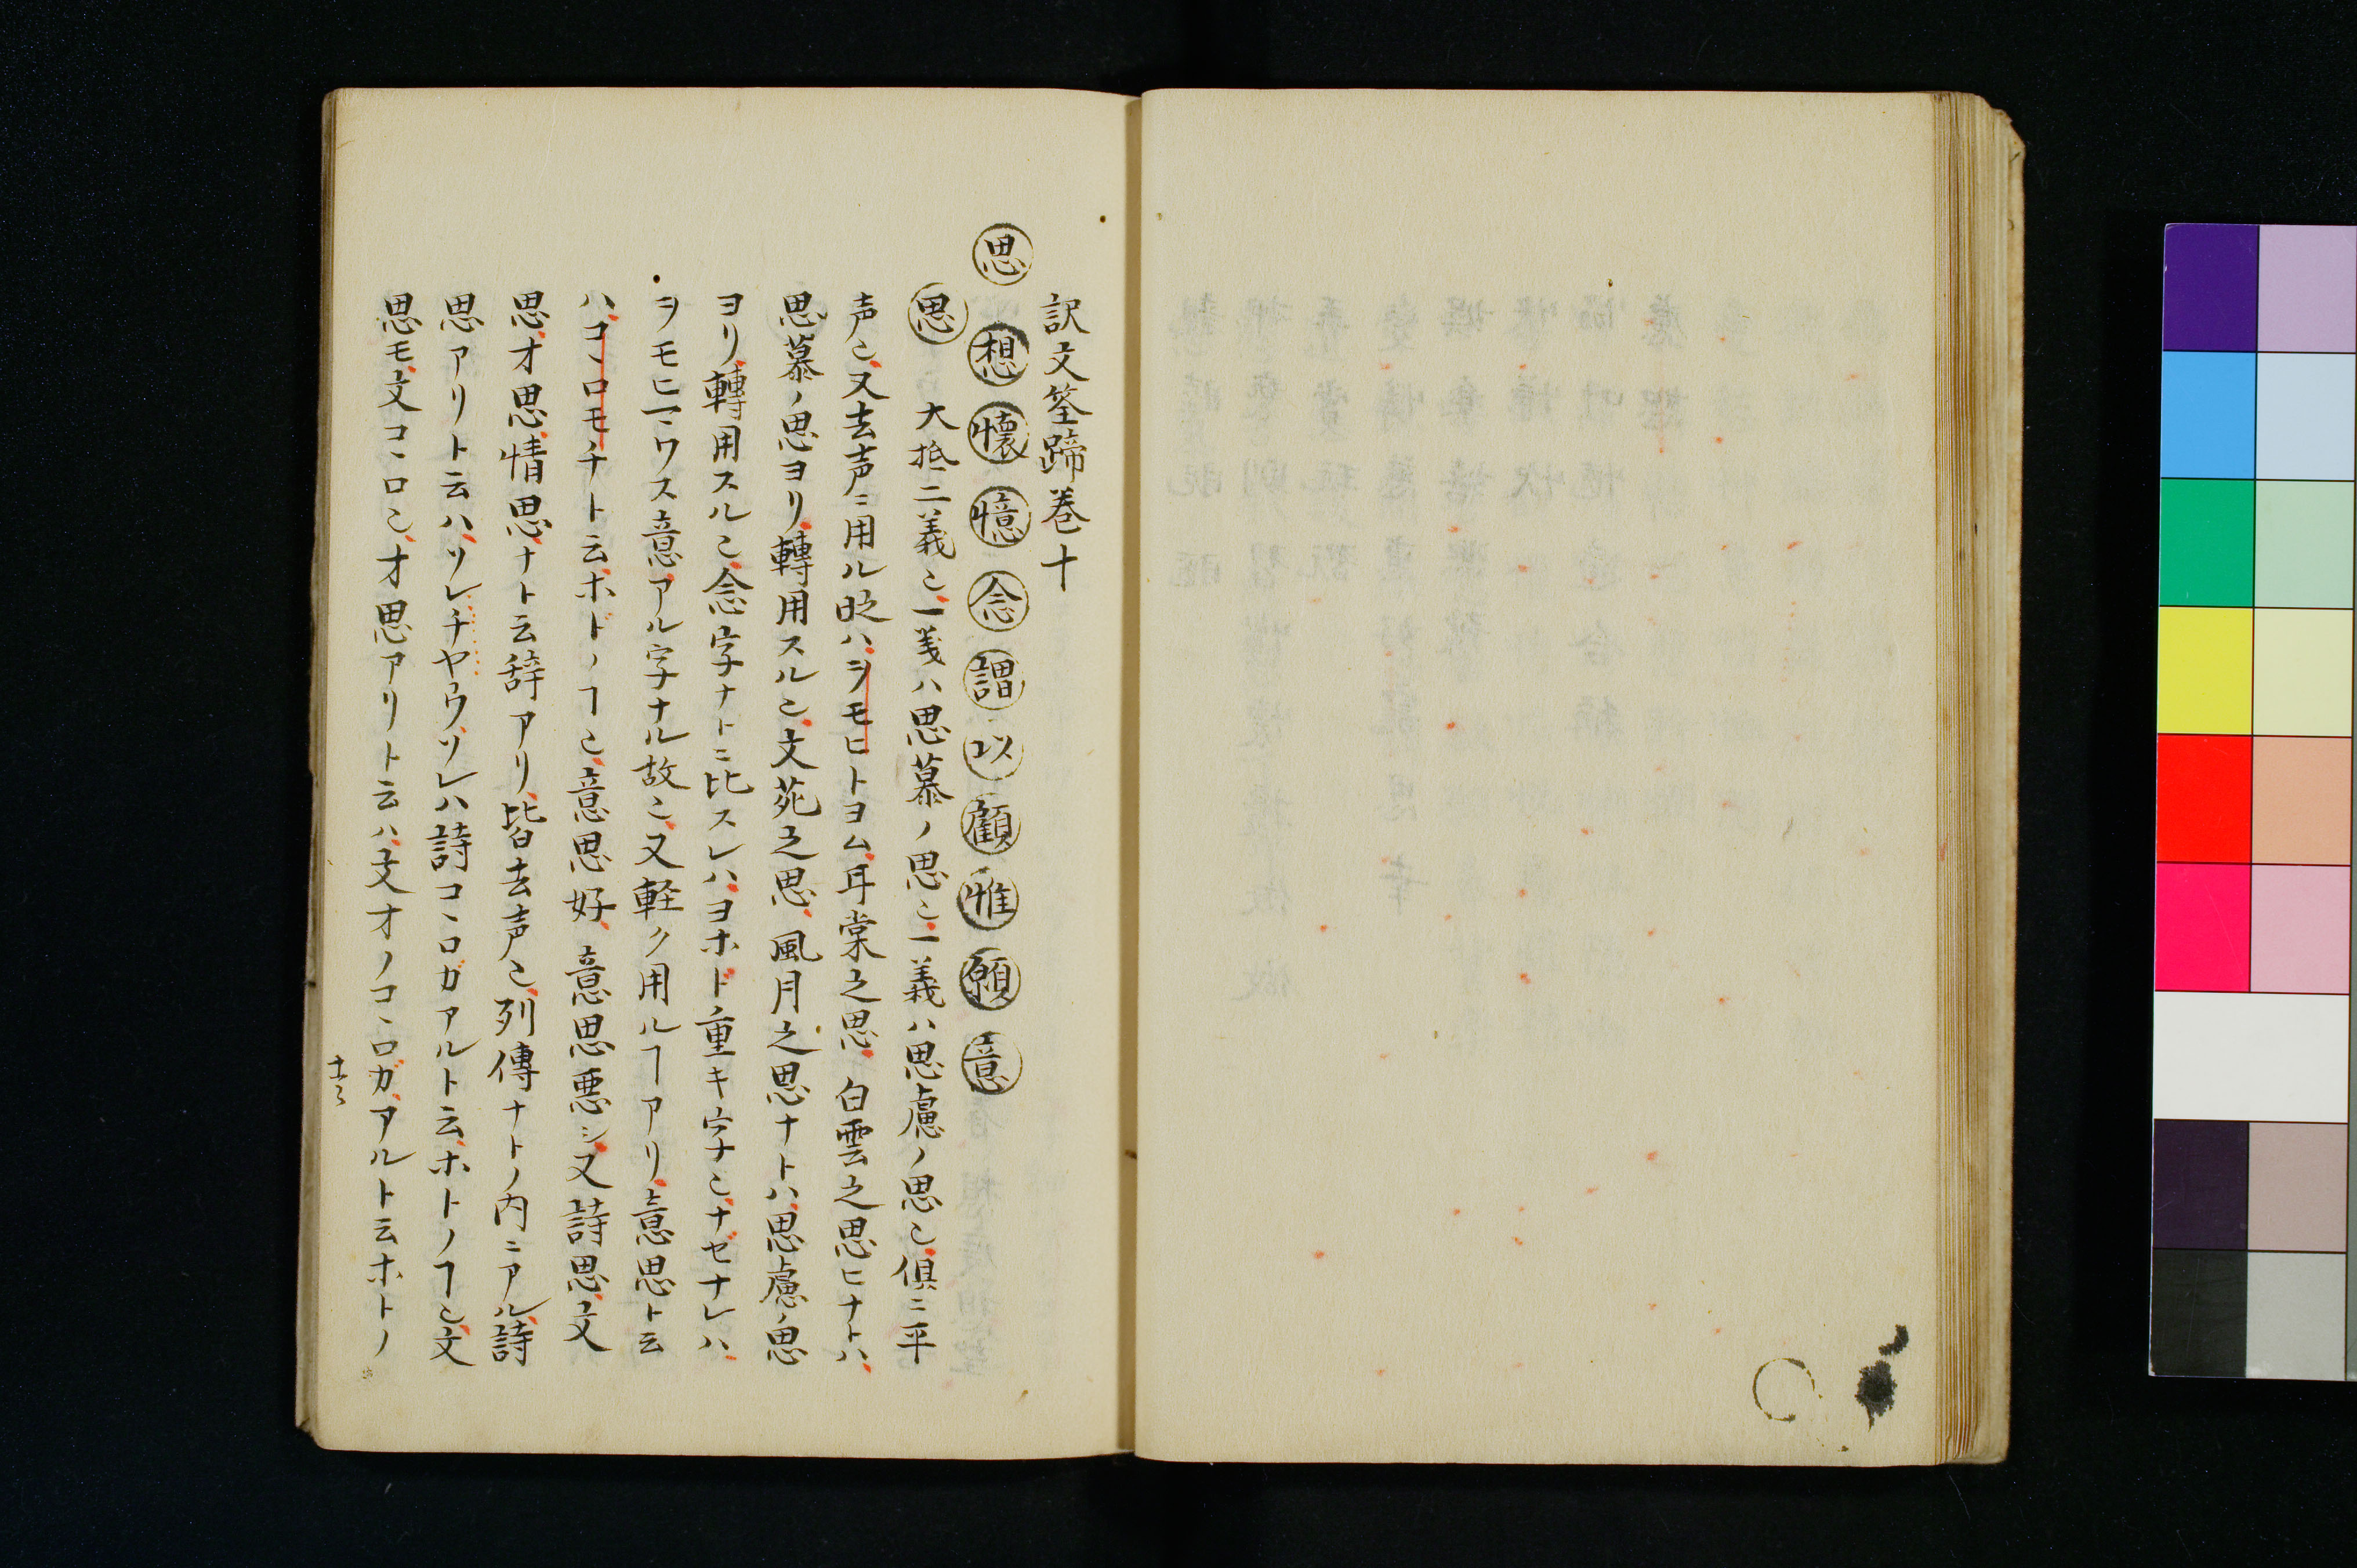 訳文筌蹄巻十
思 想 懐 憶 念 謂 以 顧 惟 願 意
思 大抵二義也一義ハ思慕ノ思也一義ハ思慮ノ思也俱ニ平
声也又去声ニ用ル时ハヲモヒトヨム耳棠之思白雲之思ヒナトハ
思慕ノ思ヨリ轉用スル也文苑之思風月之思ナトハ思慮ノ思
ヨリ轉用スル也念字ナトニ比スレハヨホド重キ字也ナゼナレハ
ヲモヒマワス意アル字ナル故也又軽ク用ルヿアリ意思ト云
ハコヽロモチト云ホドノヿ也意思好意思悪シ又詩思文
思才思情思ナト云辞アリ皆去声也列傳ナトノ内ニアル詩
思アリト云ハソレチヤウソレハ詩コヽロガアルト云ホトノヿ也文
思モ文コヽロ也才思アリト云ハ文オノコヽロガアルト云ホトノ